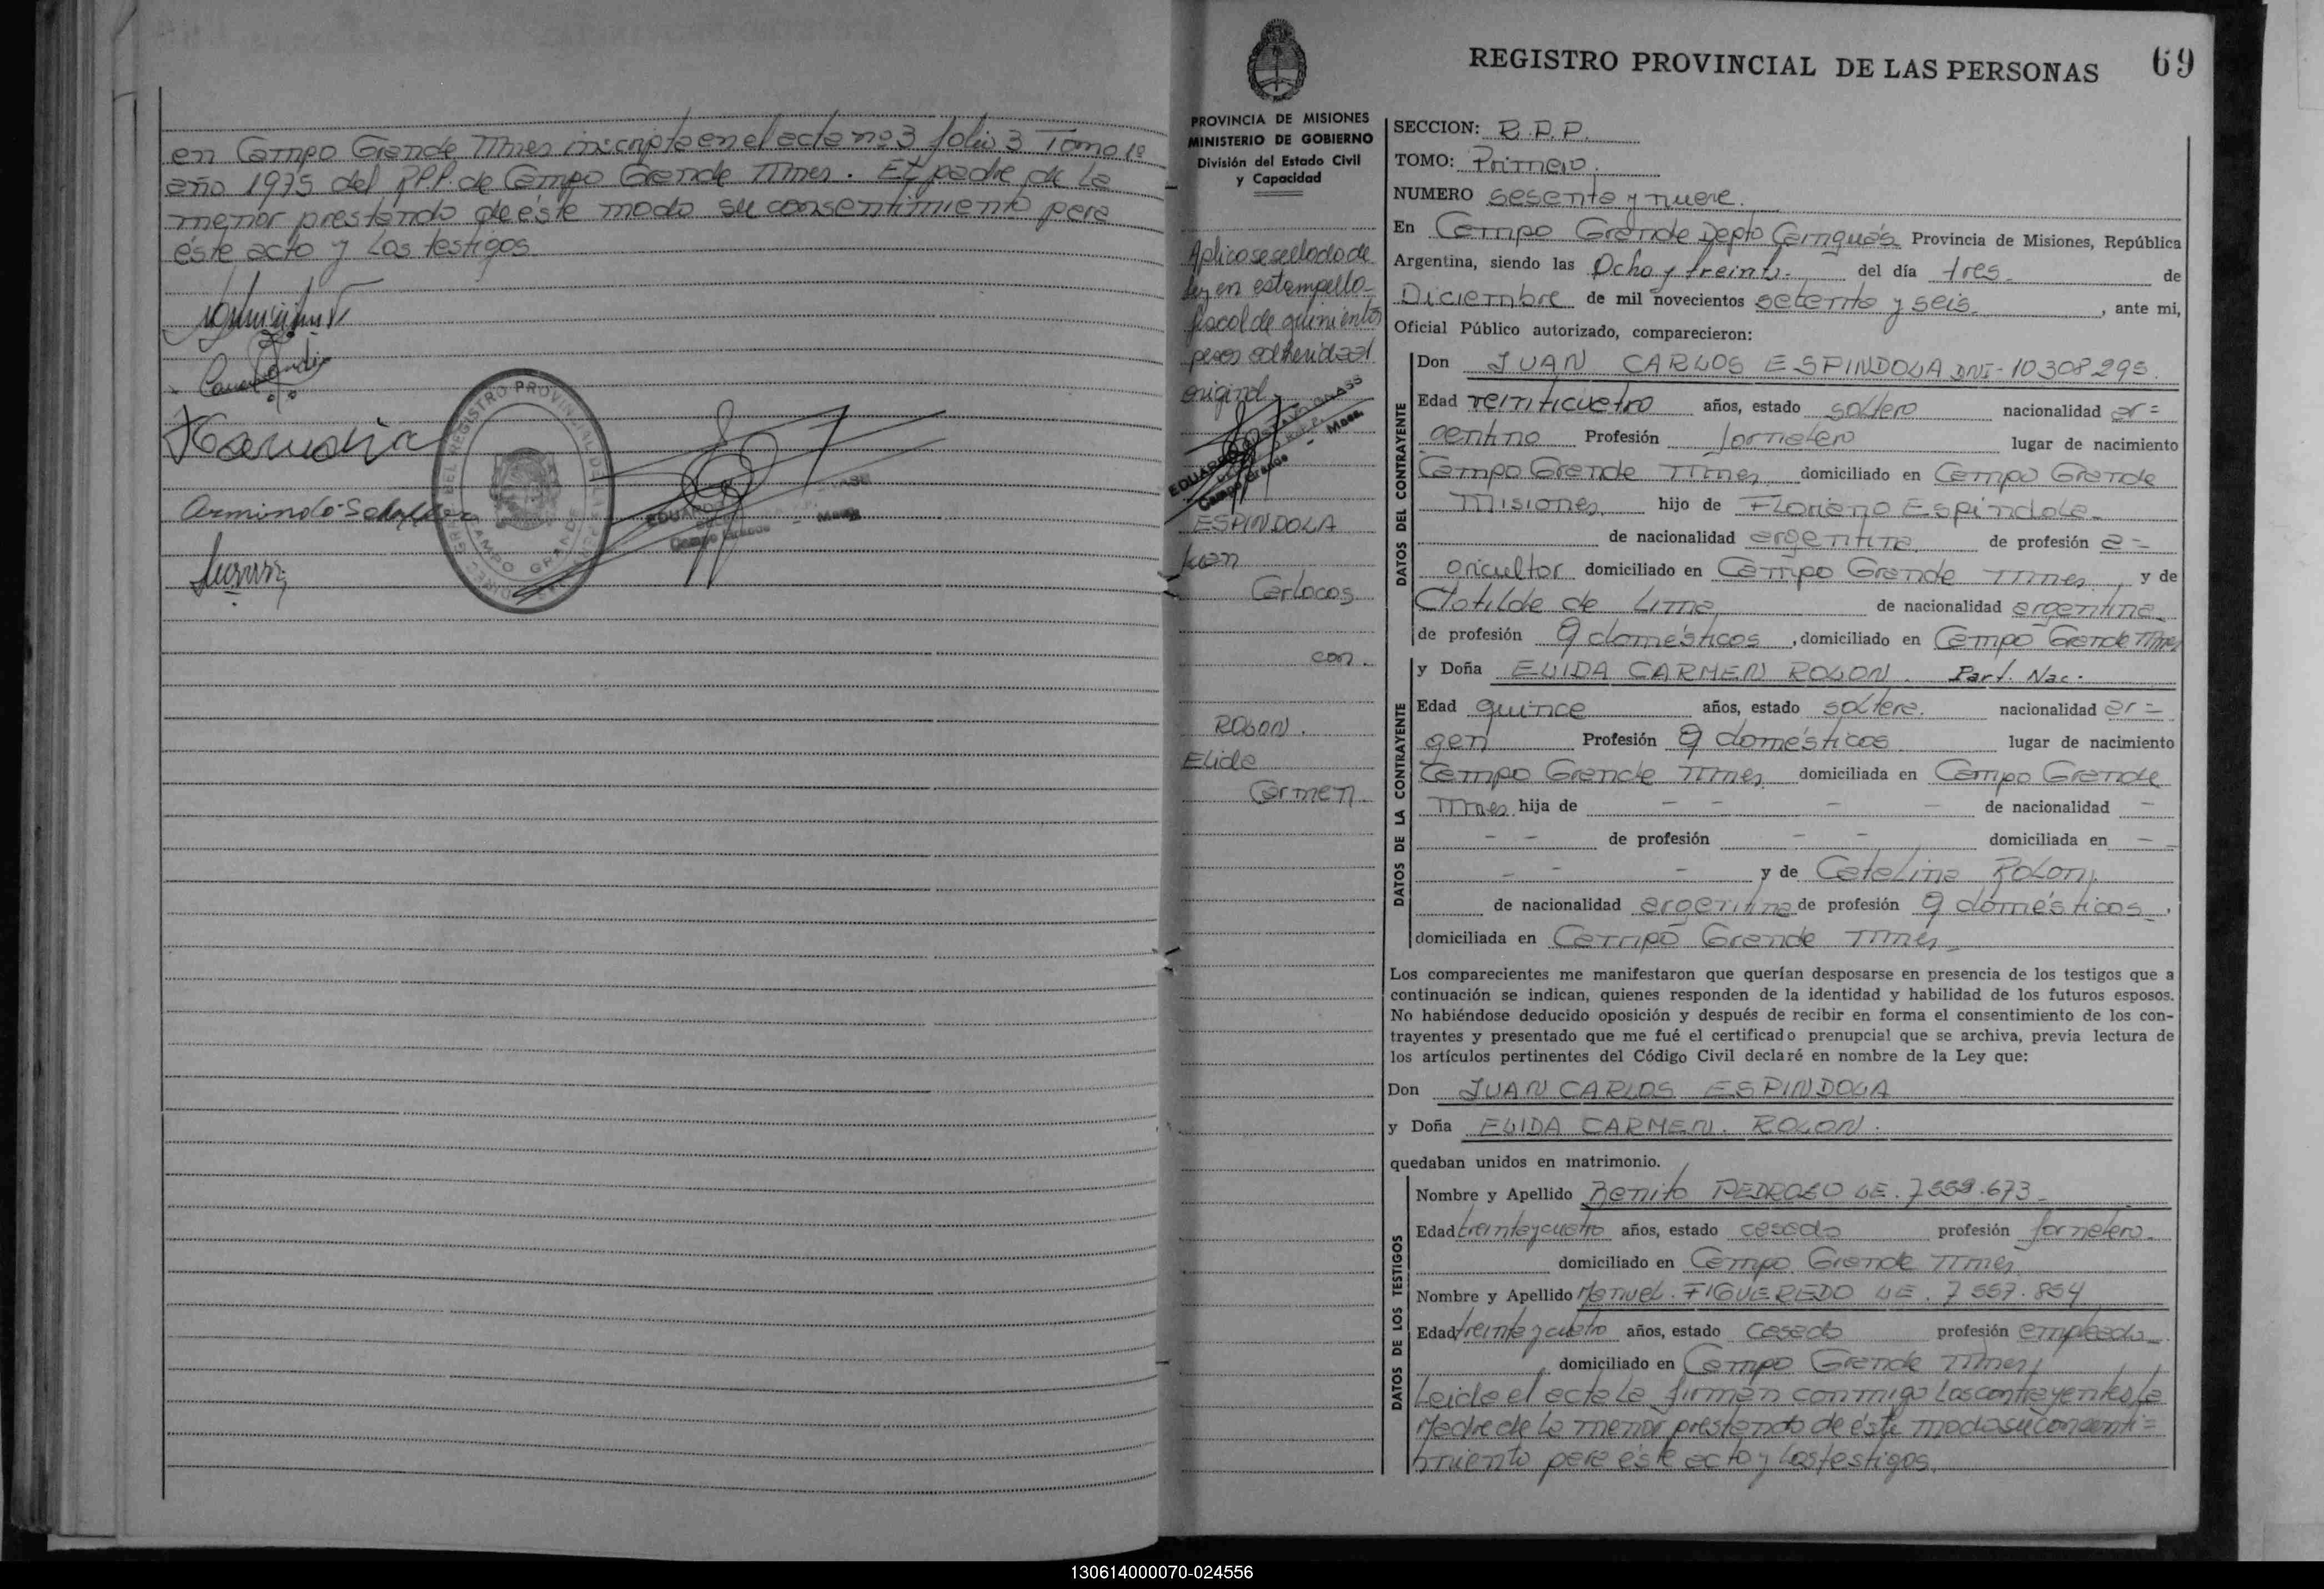 en Campo Grande Mnes inscripta en el acta nº 3 folio 3 Tomo 1º
año 1975 del RPP. de Campo Grande Mnes. El padre de la
menor prestando de éste modo su consentimiento para
éste acto y los testigos
Armindo Schaffer
REGISTRO PROVINCIAL DE LAS PERSONAS
CAMPO GRANDE
EDUARDO
Campo Grande - Mnes.
REGISTRO PROVINCIAL DE LAS PERSONAS 69
PROVINCIA DE MISIONES
MINISTERIO DE GOBIERNO
División del Estado Civil
y Capacidad
Aplicose sellado de
ley en estampilla
fiscal de quinientos
pesos adherida al
original
EDUARDO
Campo Grande - Mnes.
ESPINDOLA
Juan
Carlocos
con.
ROLON.
Elida
Carmen.
SECCION: R.P.P.
TOMO: Primero.
NUMERO sesenta y nueve.
En Campo Grande Depto Cainguás Provincia de Misiones, República
Argentina, siendo las Ocho y treinta- del día tres- de
Diciembre de mil novecientos setenta y seis. , ante mi,
Oficial Público autorizado, comparecieron:
DATOS DEL CONTRAYENTE
Don JUAN CARLOS ESPINDOLA DNI- 10308295.
Edad veinticuatro años, estado soltero nacionalidad ar=
gentino Profesión Jornalero lugar de nacimiento
Campo Grande Mnes, domiciliado en Campo Grande
Misiones, hijo de Floriano Espindola-
de nacionalidad argentina, de profesión a=
gricultor domiciliado en Campo Grande Mnes, y de
Clotilde de Lima de nacionalidad argentina
de profesión Q domésticos , domiciliado en Campo Grande Mnes
DATOS DE LA CONTRAYENTE
y Doña ELIDA CARMEN ROLON. Part. Nac.
Edad quince años, estado soltera. nacionalidad ar=
gen Profesión Q domésticos lugar de nacimiento
Campo Grande Mnes, domiciliada en Campo Grande
Mnes, hija de - - - - de nacionalidad -
- - de profesión - - domiciliada en - -
- - - y de Catalina Rolon,
de nacionalidad argentina de profesión Q domésticos- ,
domiciliada en Campo Grande Mnes-
Los comparecientes me manifestaron que querían desposarse en presencia de los testigos que a
continuación se indican, quienes responden de la identidad y habilidad de los futuros esposos.
No habiéndose deducido oposición y después de recibir en forma el consentimiento de los con-
trayentes y presentado que me fué el certificado prenupcial que se archiva, previa lectura de
los artículos pertinentes del Código Civil declaré en nombre de la Ley que:
Don JUAN CARLOS ESPINDOLA
y Doña ELIDA CARMEN. ROLON.
quedaban unidos en matrimonio.
DATOS DE LOS TESTIGOS
Nombre y Apellido Benito PEDROSO LE. 7559.673-
Edad treinta y cuatro años, estado casado profesión Jornalero-
domiciliado en Campo Grande Mnes
Nombre y Apellido Manuel. FIGUEREDO LE. 7557.854
Edad treinta y cuatro años, estado casado profesión empleado-
domiciliado en Campo Grande Mnes,
Leida el acta la firman conmigo los contrayentes, la
Madre de la menor prestando de éste modo su consenti=
miento para éste acto y los testigos.
130614000070-024556